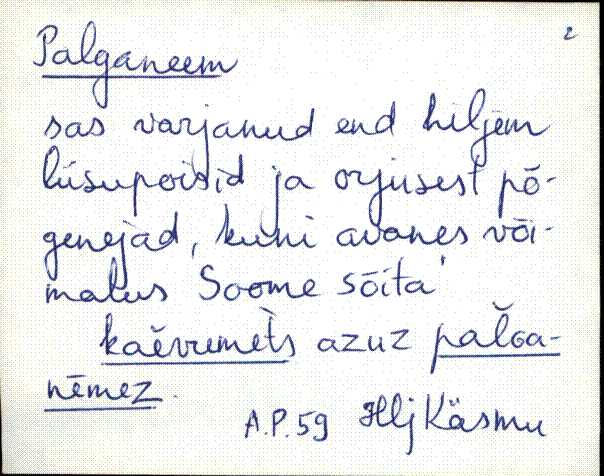 2
Palganeem
sas varjanud end hiljem
liisupoisid ja orjusest põ-
genejad, kuni avanes või-
malus Soome sõita'
kaěvumèts azuz pal̆Ga-
nēmez.
A.P. 59 Hlj Käsmu